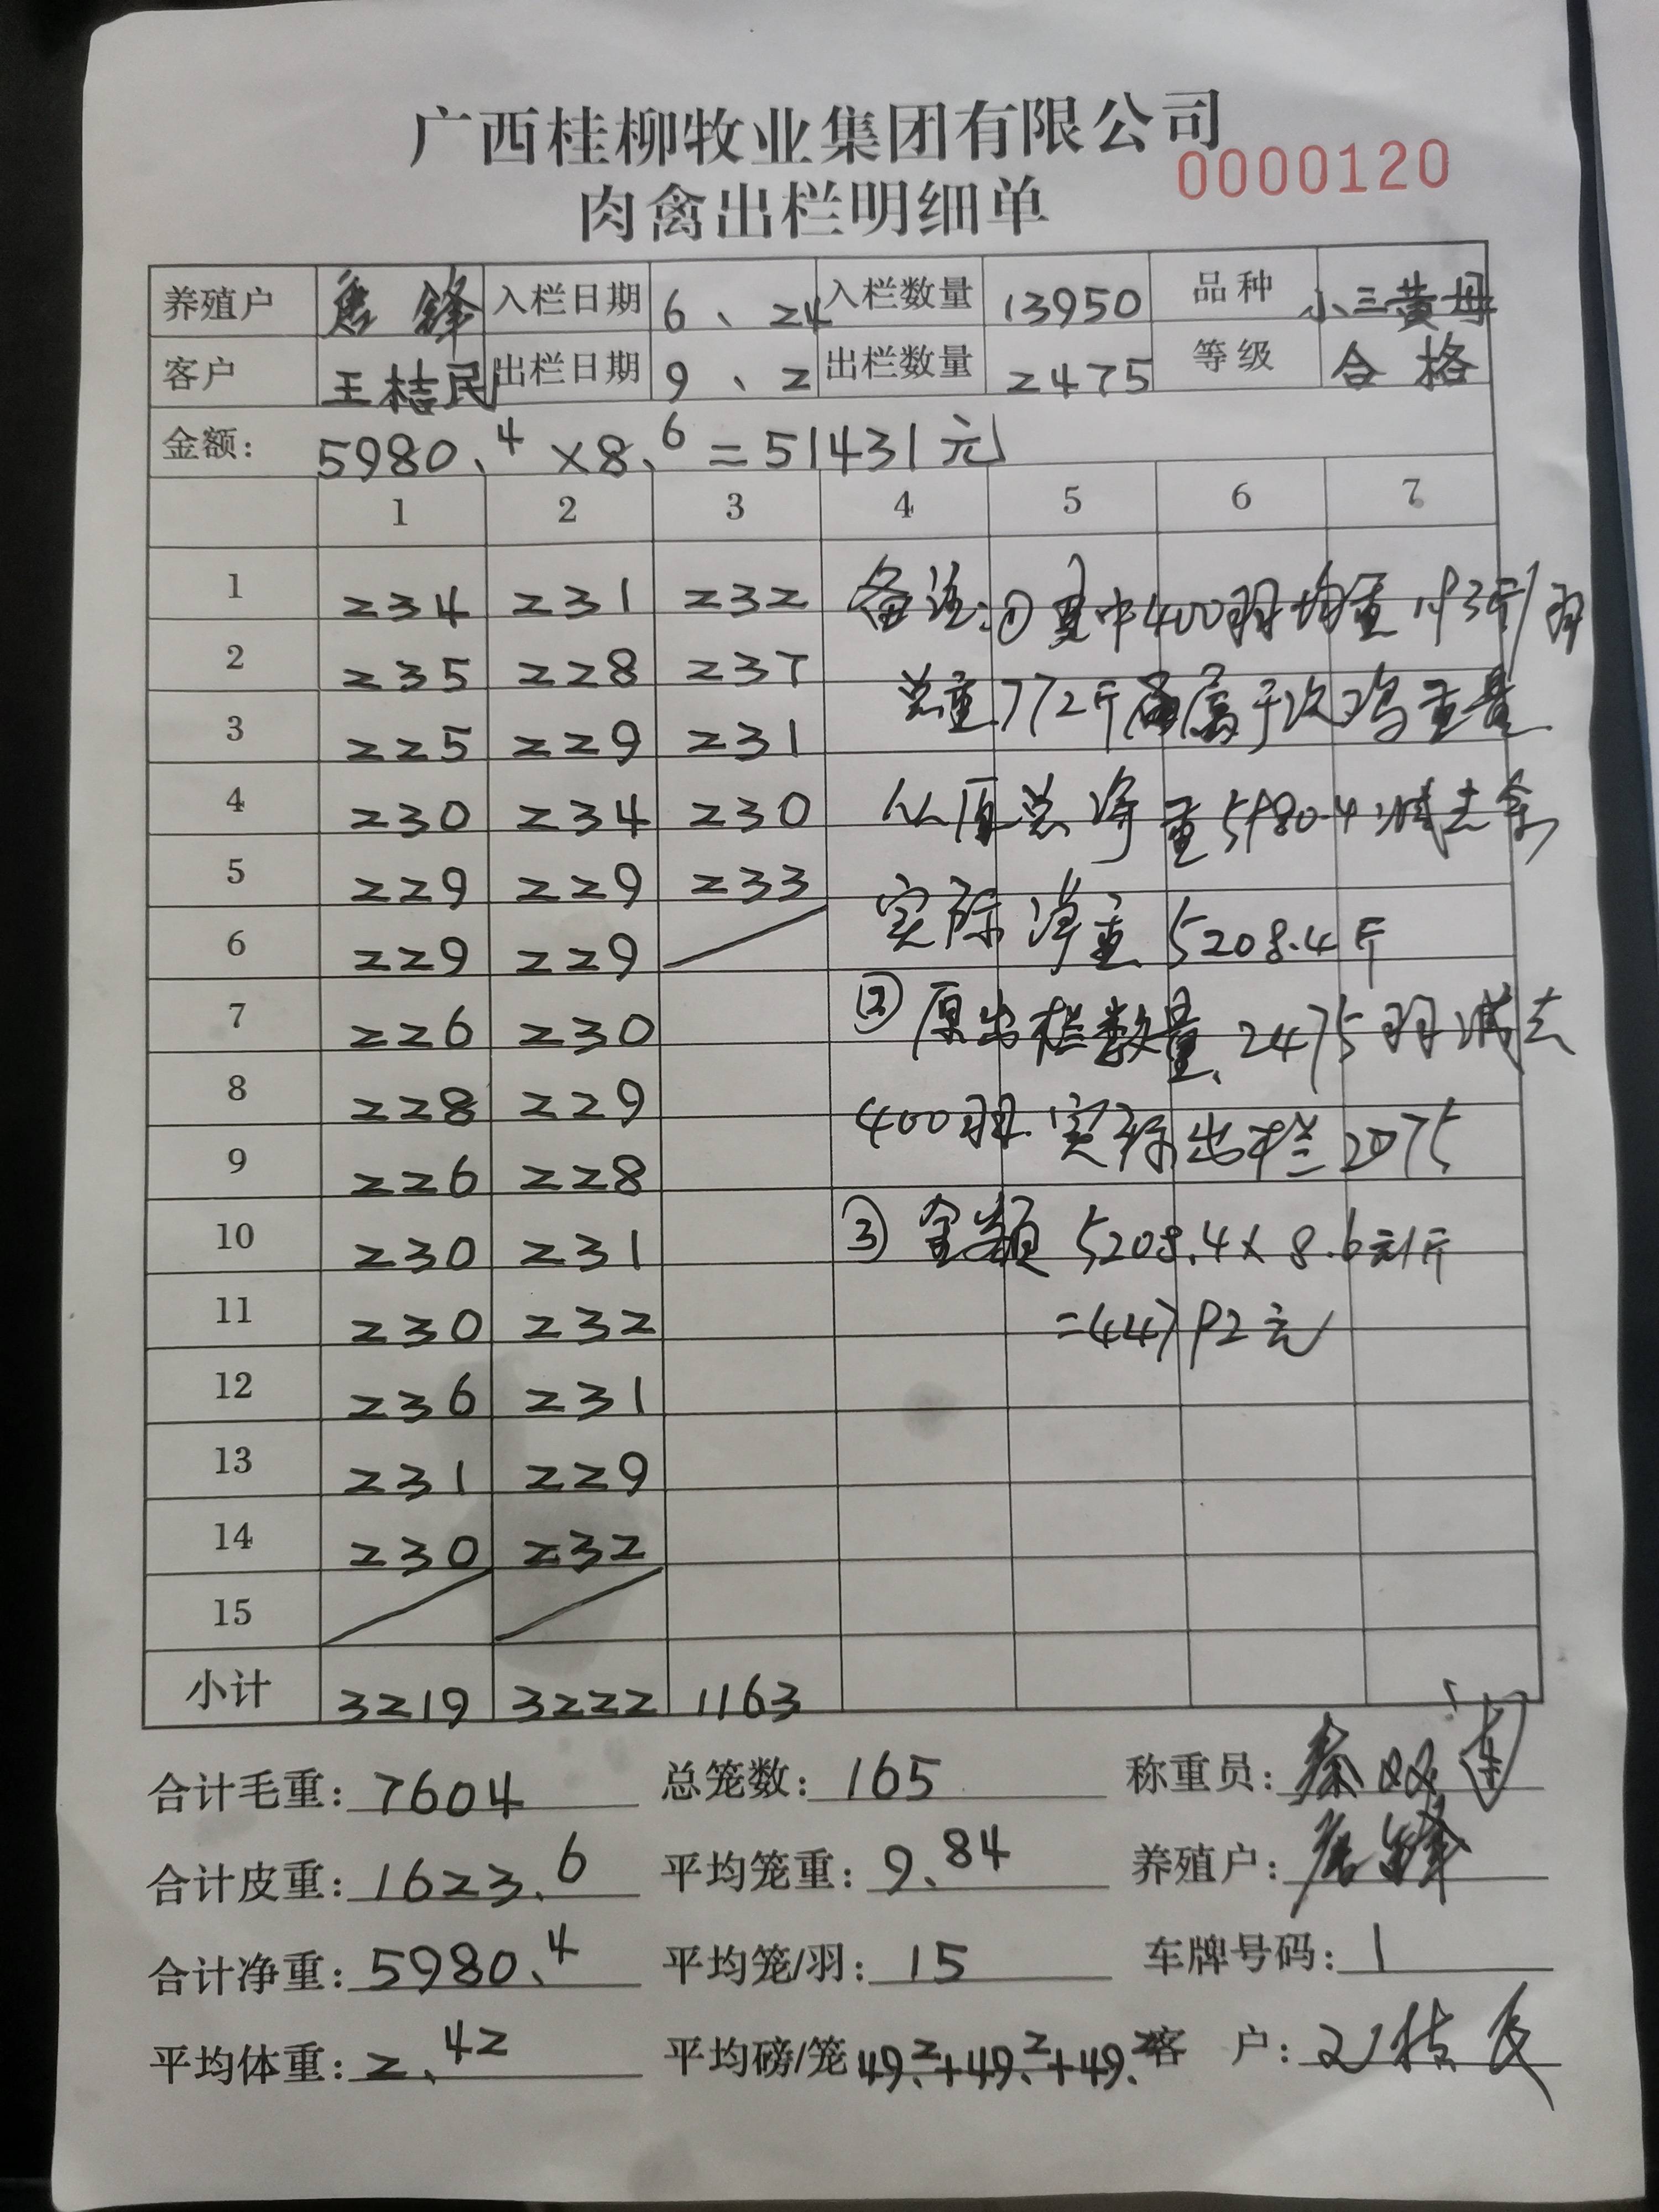 广西桂柳牧业集团有限公司
0000120
肉禽出栏明细单
养殖户 唐锋 入栏日期 6、24 入栏数量 13950 品种 小三黄母
客户 王桔民 出栏日期 9、2 出栏数量 2475 等级 合格
金额: 5980.4×8.6=51431元
1 2 3 4 5 6 7
1 234 231 232 备注:①其中400羽均重1.93斤/羽
2 235 228 237 总重772斤属于次鸡重量
3 225 229 231
4 230 234 230 从原总净重5980.4减去
5 229 229 233 实际净重5208.4斤
6 229 229
7 226 230 ②原出栏数量2475羽减去
8 228 229 400羽实际出栏2075
9 226 228
10 230 231 ③金额5208.4×8.6元/斤
11 230 232 =44792元
12 236 231
13 231 229
14 230 232
15
小计 3219 3222 1163
合计毛重: 7604 总笼数: 165 称重员: 秦
合计皮重: 1623.6 平均笼重: 9.84 养殖户: 唐锋
合计净重: 5980.4 平均笼/羽: 15 车牌号码: 1
平均体重: 2.42 平均磅/笼 49.2+49.2+49.2 客 户: 王桔民